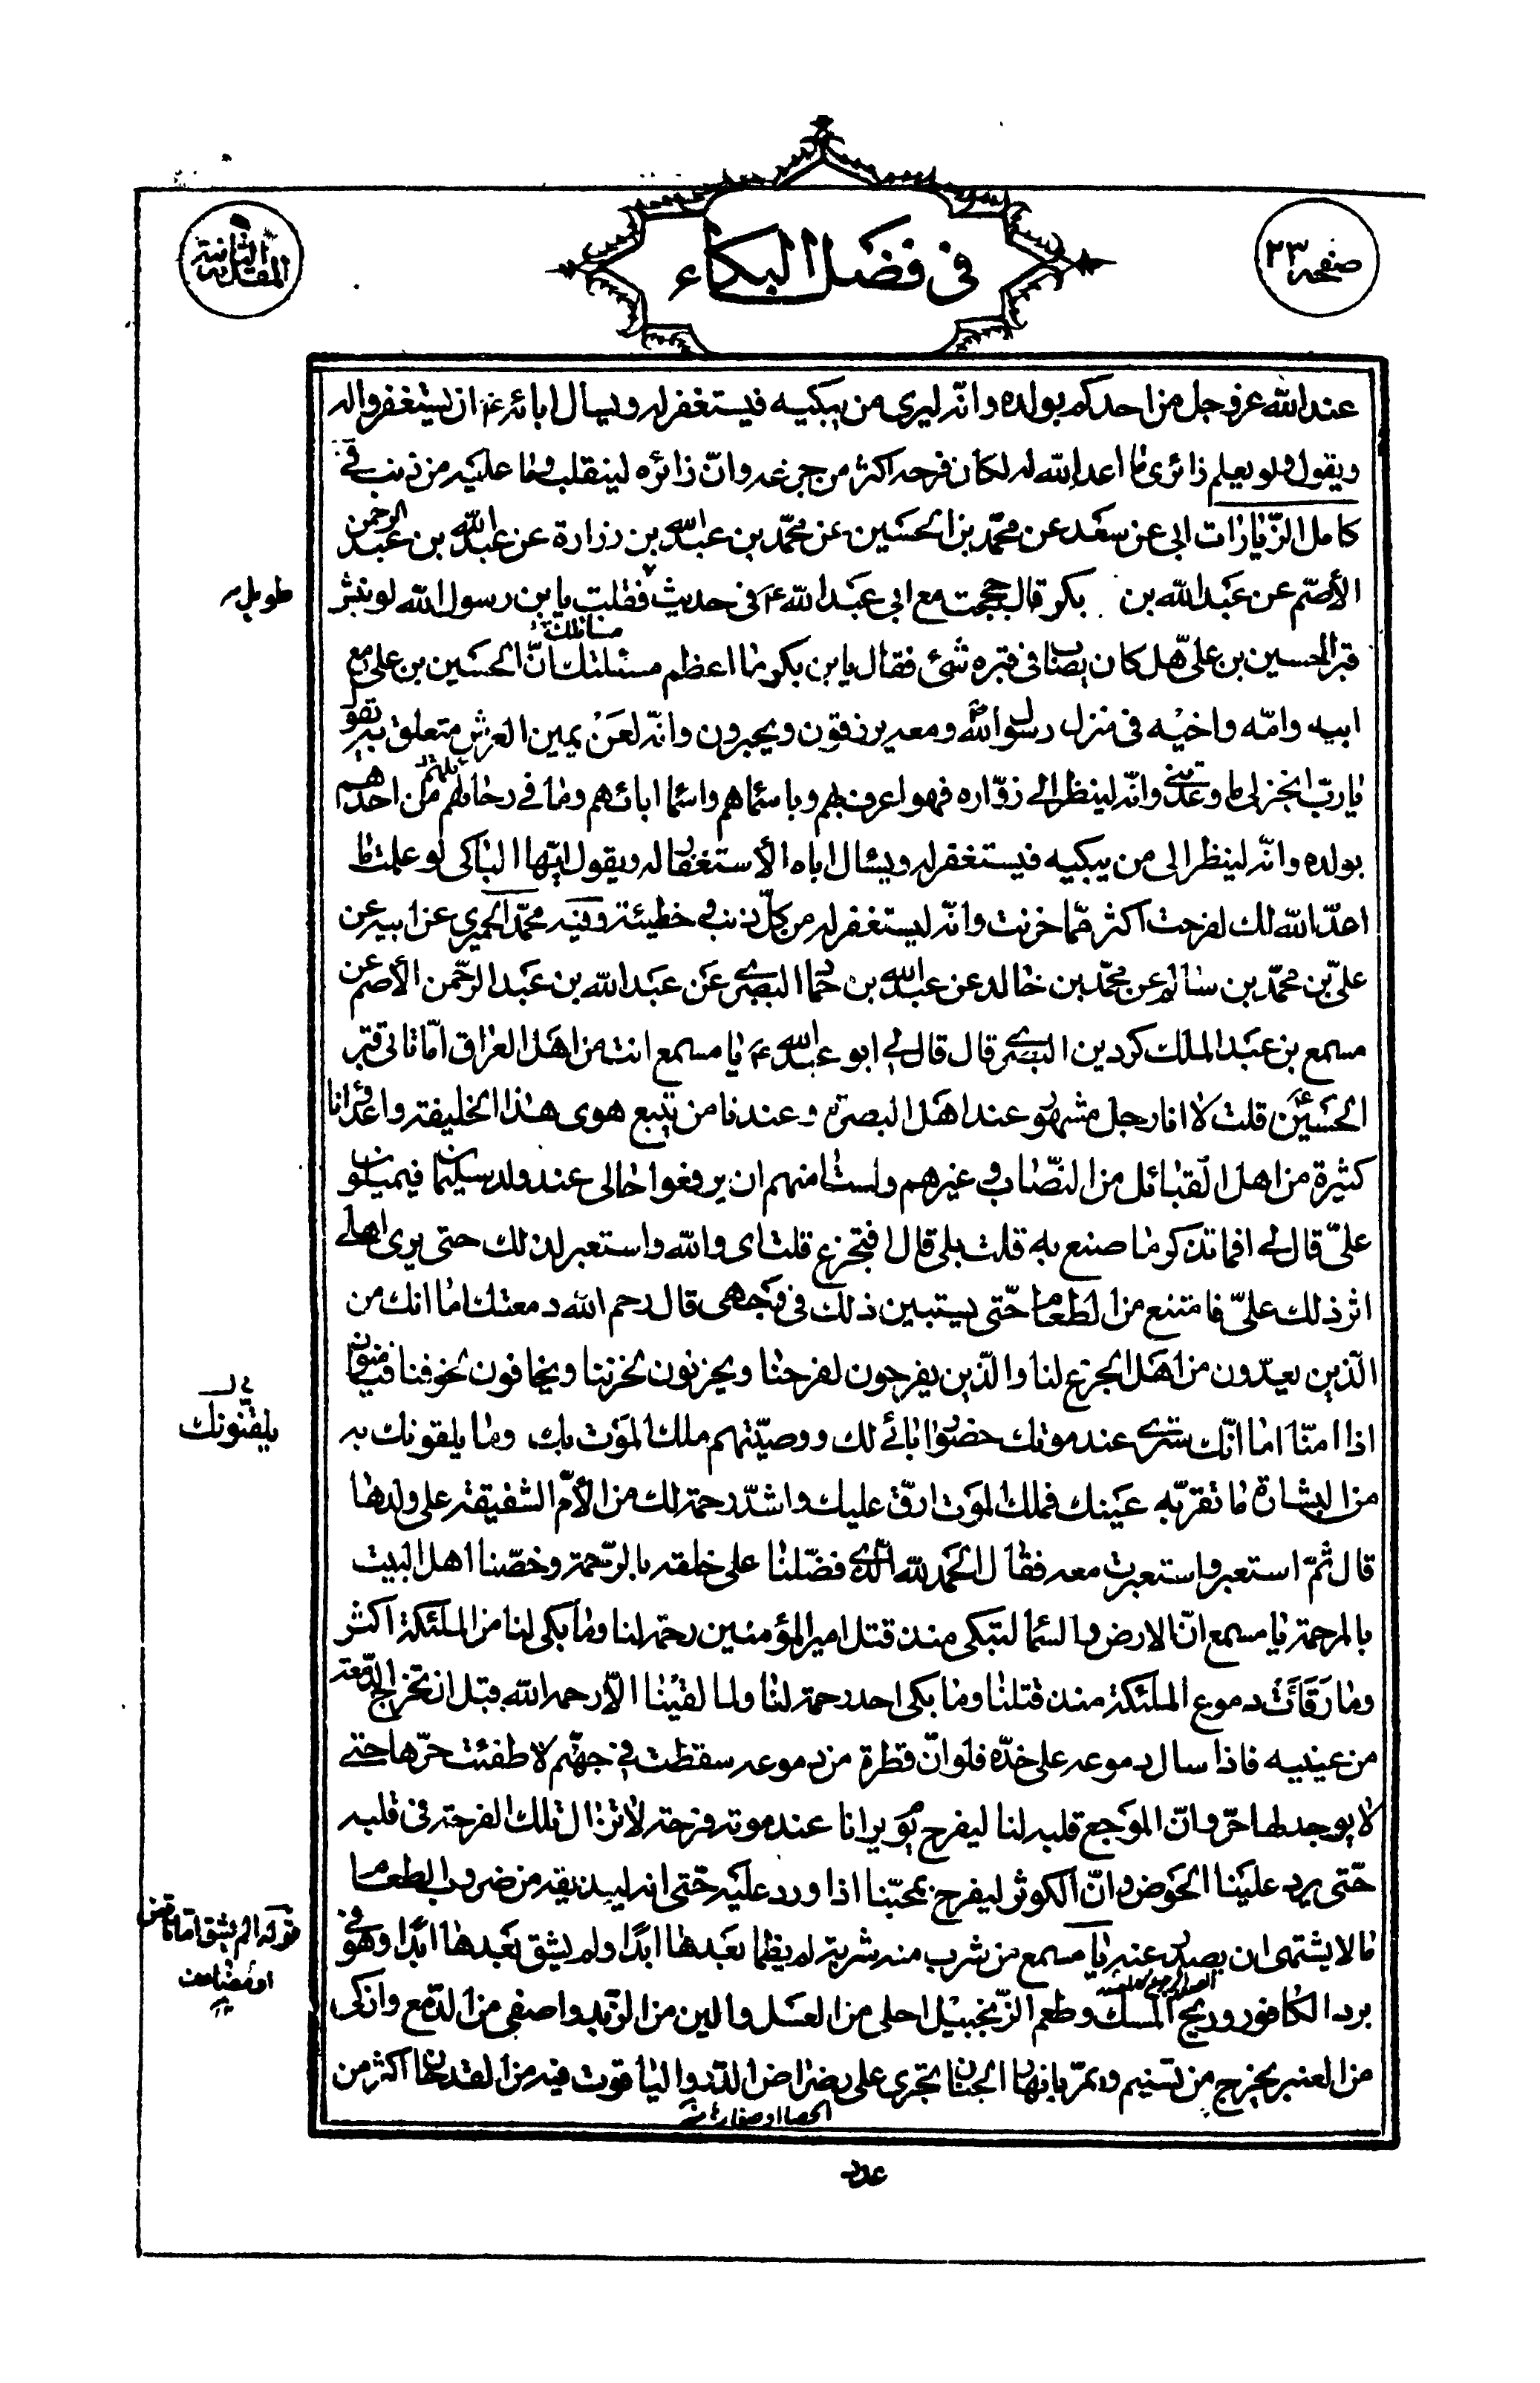 صفحه ٢٣
فى فضل البكاء
المقدمة الثانية
عند الله عز وجل من احدكم بولده وانّه ليرى من يبكيه فيستغفر له ويسال ابائه ع ان يستغفروا له
ويقول ولو يعلم زائرى ما اعد الله له لكان فرحه اكثر من جزعه وانّ زائره لينقلب وما عليه من ذنب فى
كامل الزّيارات ابى عن سعد عن محمّد بن الحسين عن محمّد بن عبد الله بن زرارة عن عبد الله بن عبد الرحمن
الأصّم عن عبد الله بن بكر قال حججت مع ابى عبد الله ع فى حديث فقلت يا بن رسول الله لو نبش
طويل
قبر الحسين بن علىّ هل كان يصاب فى قبره شئ فقال يا بن بكر ما اعظم مسئلتك انّ الحسين بن على مع
مسائلك
ابيه وامّه واخيه فى منزل رسول الله ص ومعه يرزقون ويحبرون وانّه لعن يمين العرش متعلق به يقول
يا ربّ انجز لى ما وعدتنى وانّه لينظر الى زوّاره فهو اعرف بهم وباسمائهم واسماء ابائهم وما فى رحالهم من احدهم
بولده وانّه لينظر الى من يبكيه فيستغفر له ويسال اباه الأستغفار له ويقول ايّها الباكى لو علمت ما
اعدّ الله لك لفرحت اكثر ممّا حزنت وانّه ليستغفر له من كلّ ذنب و خطيئة وفيه محمّد الحميرى عن ابيه عن
علىّ بن محمّد بن سالم عن محمّد بن خالد عن عبد الله بن حماد البصرى عن عبد الله بن عبد الرّحمن الأصم عن
مسمع بن عبد الملك كردين البصرى قال قال لى ابو عبد الله ع يا مسمع انت من اهل العراق امّا تاتى قبر
الحسين ع قلت لا انا رجل مشهور عند اهل البصرة وعندنا من يتبع هوى هذا الخليفة واعدائنا
كثيرة من اهل القبائل من النّصّاب و غيرهم ولست امنهم ان يرفعوا حالى عند ولد سليمان فيميلون
علىّ قال لى افما تذكر ما صنع به قلت بلى قال افتجزع قلت اى والله واستعبر لذلك حتى يرى اهلى
اثر ذلك علىّ فامتنع من الطعام حّتى يستبين ذلك فى وجهى قال رحم الله دمعتك اما انك من
الّذين يعدّون من اهل الجزع لنا والّذين يفرحون لفرحنا ويحزنون لحزننا ويخافون لخوفنا ويامنون
اذا امنّا اما انّك سترى عند موتك حضور ابائى لك ووصيّتهم ملك الموت بك وما يلقونك به
يلقّنونك
من البشارة ما تقرّبه عينك فملك الموت ارقّ عليك واشدّ رحمة لك من الأمّ الشفيقة على ولدها
قال ثمّ استعبر واستعبرت معه فقال الحمد لله الّذى فضّلنا على خلقه بالرّحمة وخصّنا اهل البيت
بالرحمة يا مسمع انّ الارض والسماء لتبكى منذ قتل امير المؤمنين رحمة لنا وما بكى لنا من الملئكة اكثر
وما رقأت دموع الملئكة منذ قتلنا وما بكى احد رحمة لنا ولما لقينا الاّ رحمه الله قبل ان تخرج الدّمعة
من عينيه فاذا سال دموعه على خدّه فلو انّ قطرة من دموعه سقطت فى جهنّم لاطفئت حرّها حتى
لا يوجد لها حرّ وانّ الموجع قلبه لنا ليفرح يوم يرانا عند موته فرحة لا تزال تلك الفرحة فى قلبه
حّتى يرد علينا الحوض وانّ الكوثر ليفرح بمحبّنا اذا ورد عليه حّتى انه ليذيقه من ضروب الطعام
ما لا يشتهى ان يصدر عنه يا مسمع من شرب منه شربة لم يظما بعدها ابدًا ولم يشق بعدها ابدًا وهو فى
برد الكافور وريح المسك وطعم الزّنجبيل احلى من العسل والين من الزّبد واصفى من الدّمع واذكى
من العنبر يخرج من تسنيم ويمرّ بانهار الجنان تجرى على رضراض الدّرّ والياقوت فيه من القدحان اكثر من
الحصا او صغارها
عدد